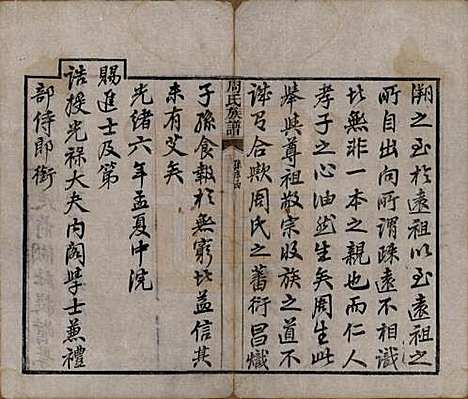 溯之至於遠祖以至遠祖之
所自出向所謂疎遠不相識
比無非一本之親也而仁人
孝子之心油然生矣周生此
舉與尊祖敬宗收族之道不
誠有合歟周氏之蕃衍昌熾
周氏族譜
子孫食報於無窮比益信其
未有艾矣
光緒六年孟夏中浣
賜進士及第
誥授光祿大夫內閣學士兼禮
部侍郎銜